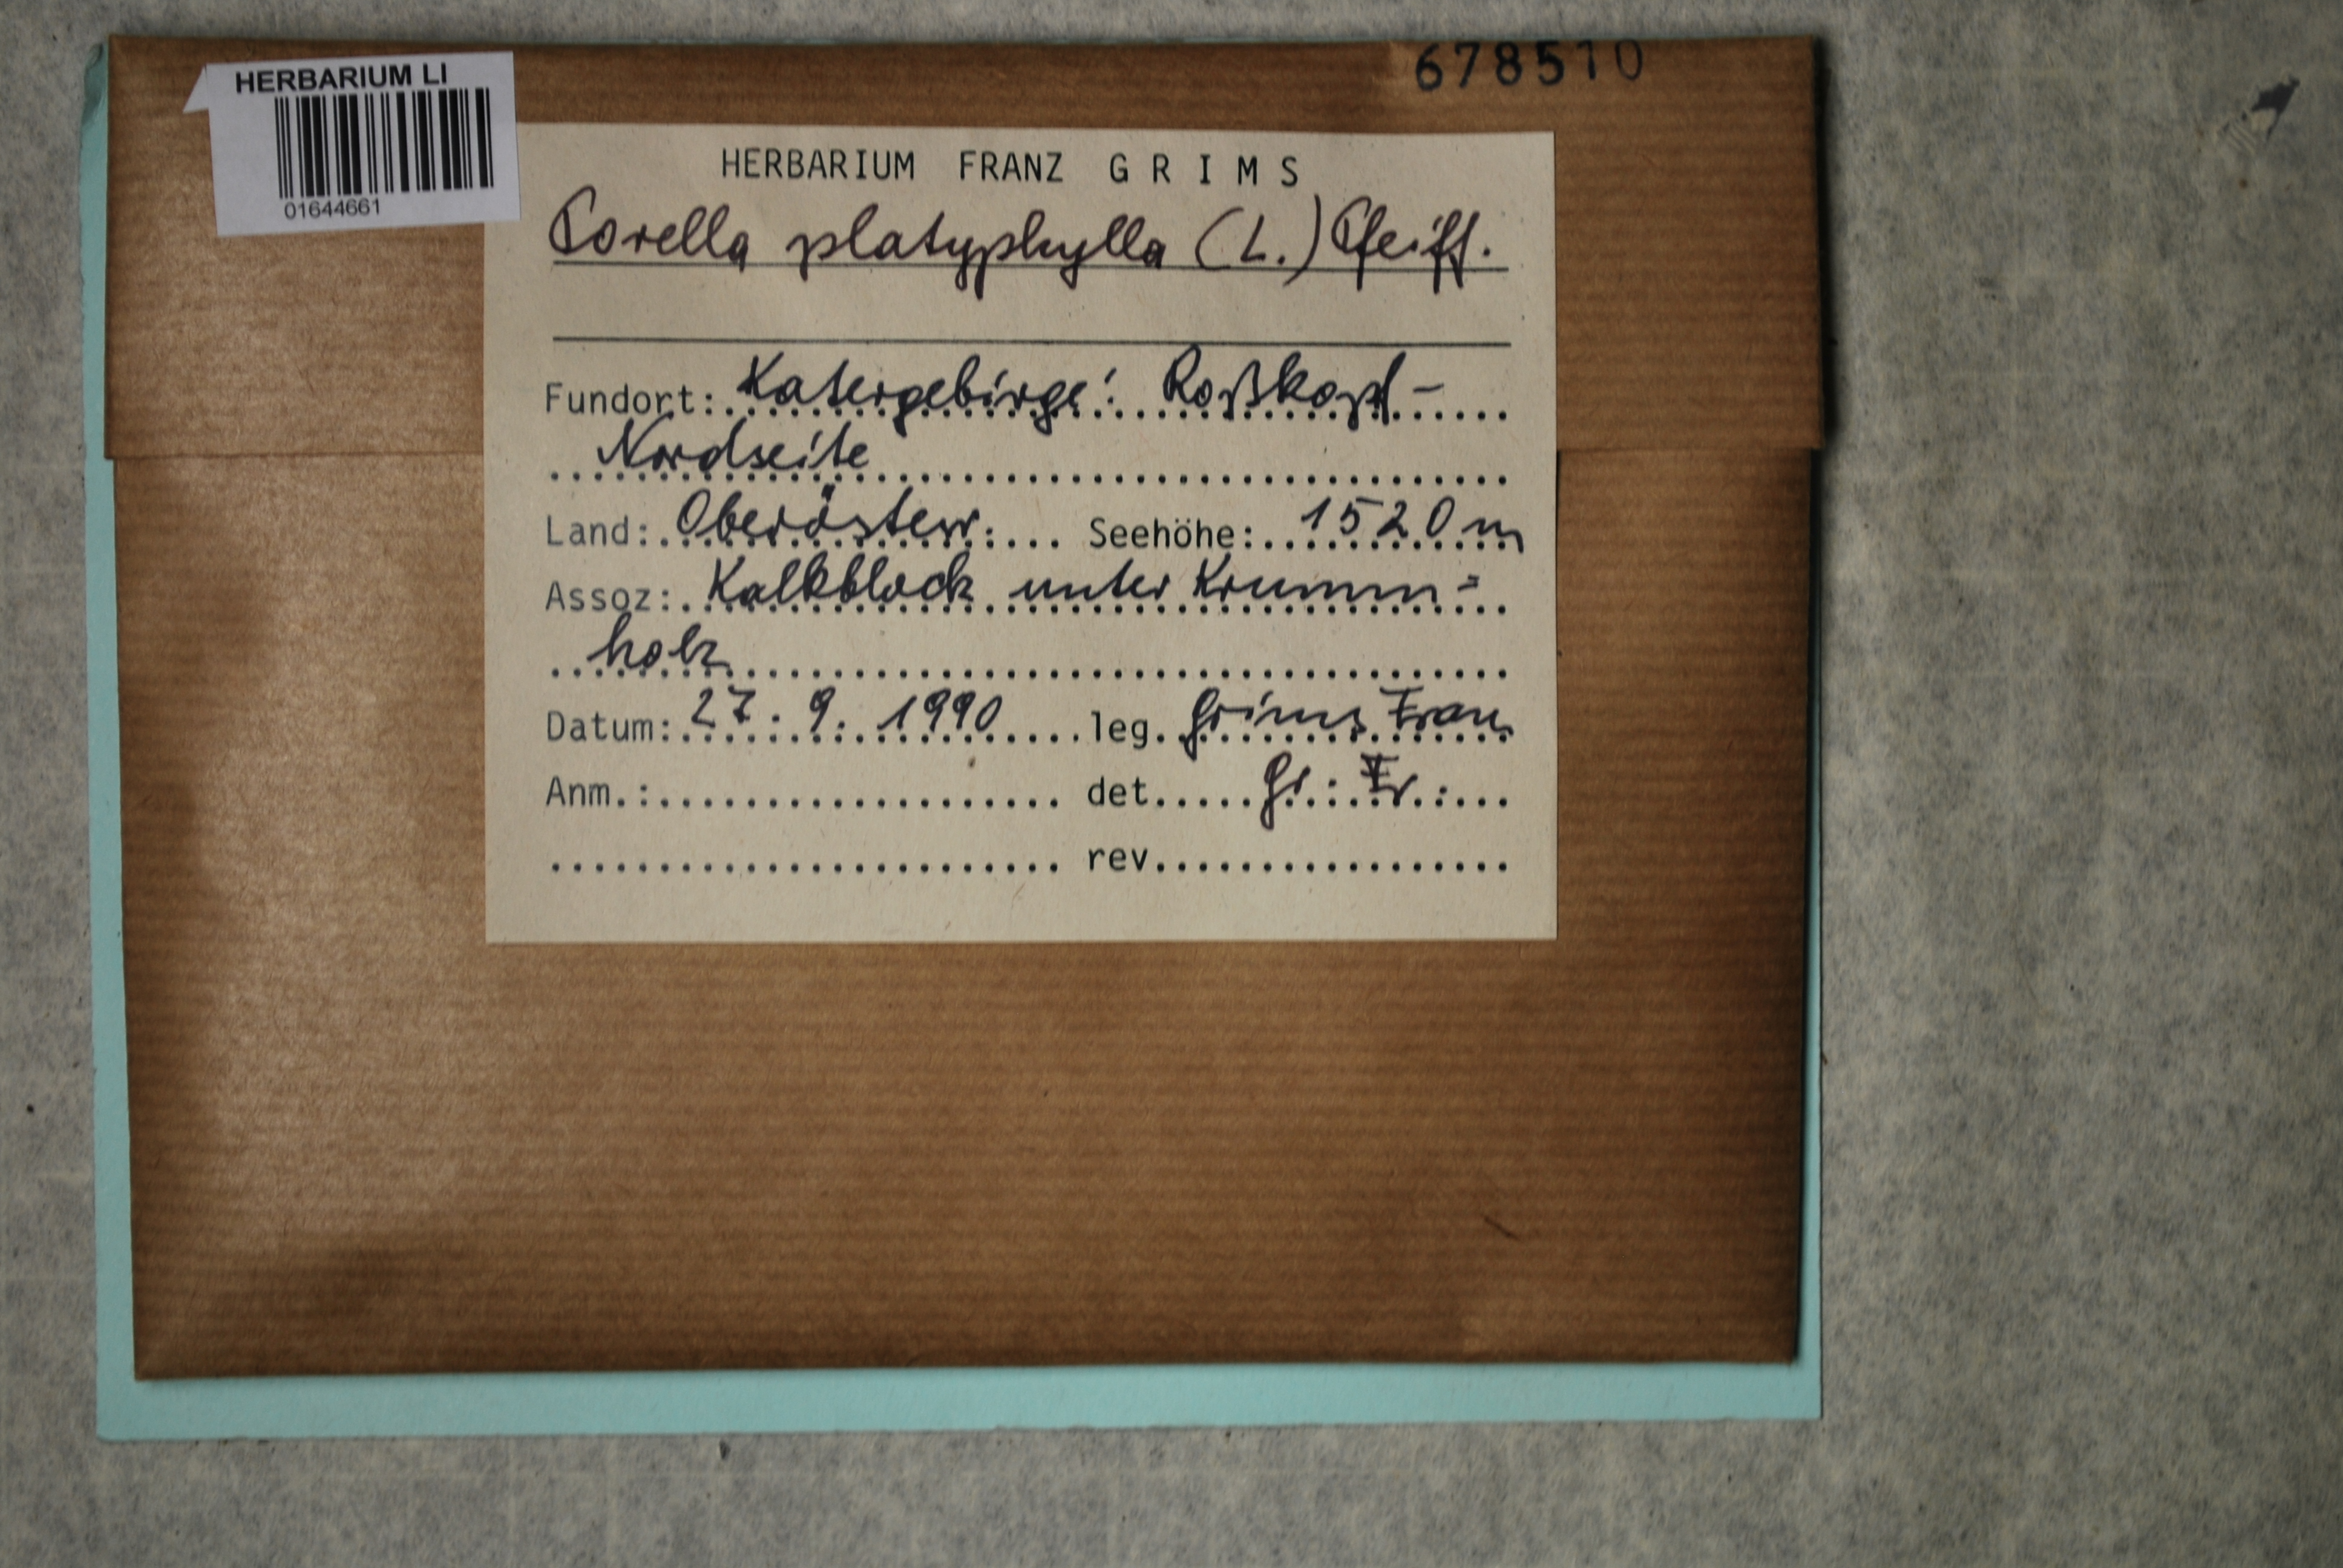 678510
HERBARIUM LI
01644661
HERBARIUM FRANZ GRIMS
Porella platyphylla (L.) Pfeiff.
Fundort: Katergebirge: Roßkopf-
Nordseite
Land: Oberösterr. Seehöhe: 1520 m
Assoz: Kalkblock unter Krumm=
holz
Datum: 27. 9. 1990 leg. Grims Franz
Anm.: det. Gr. Fr.
rev.